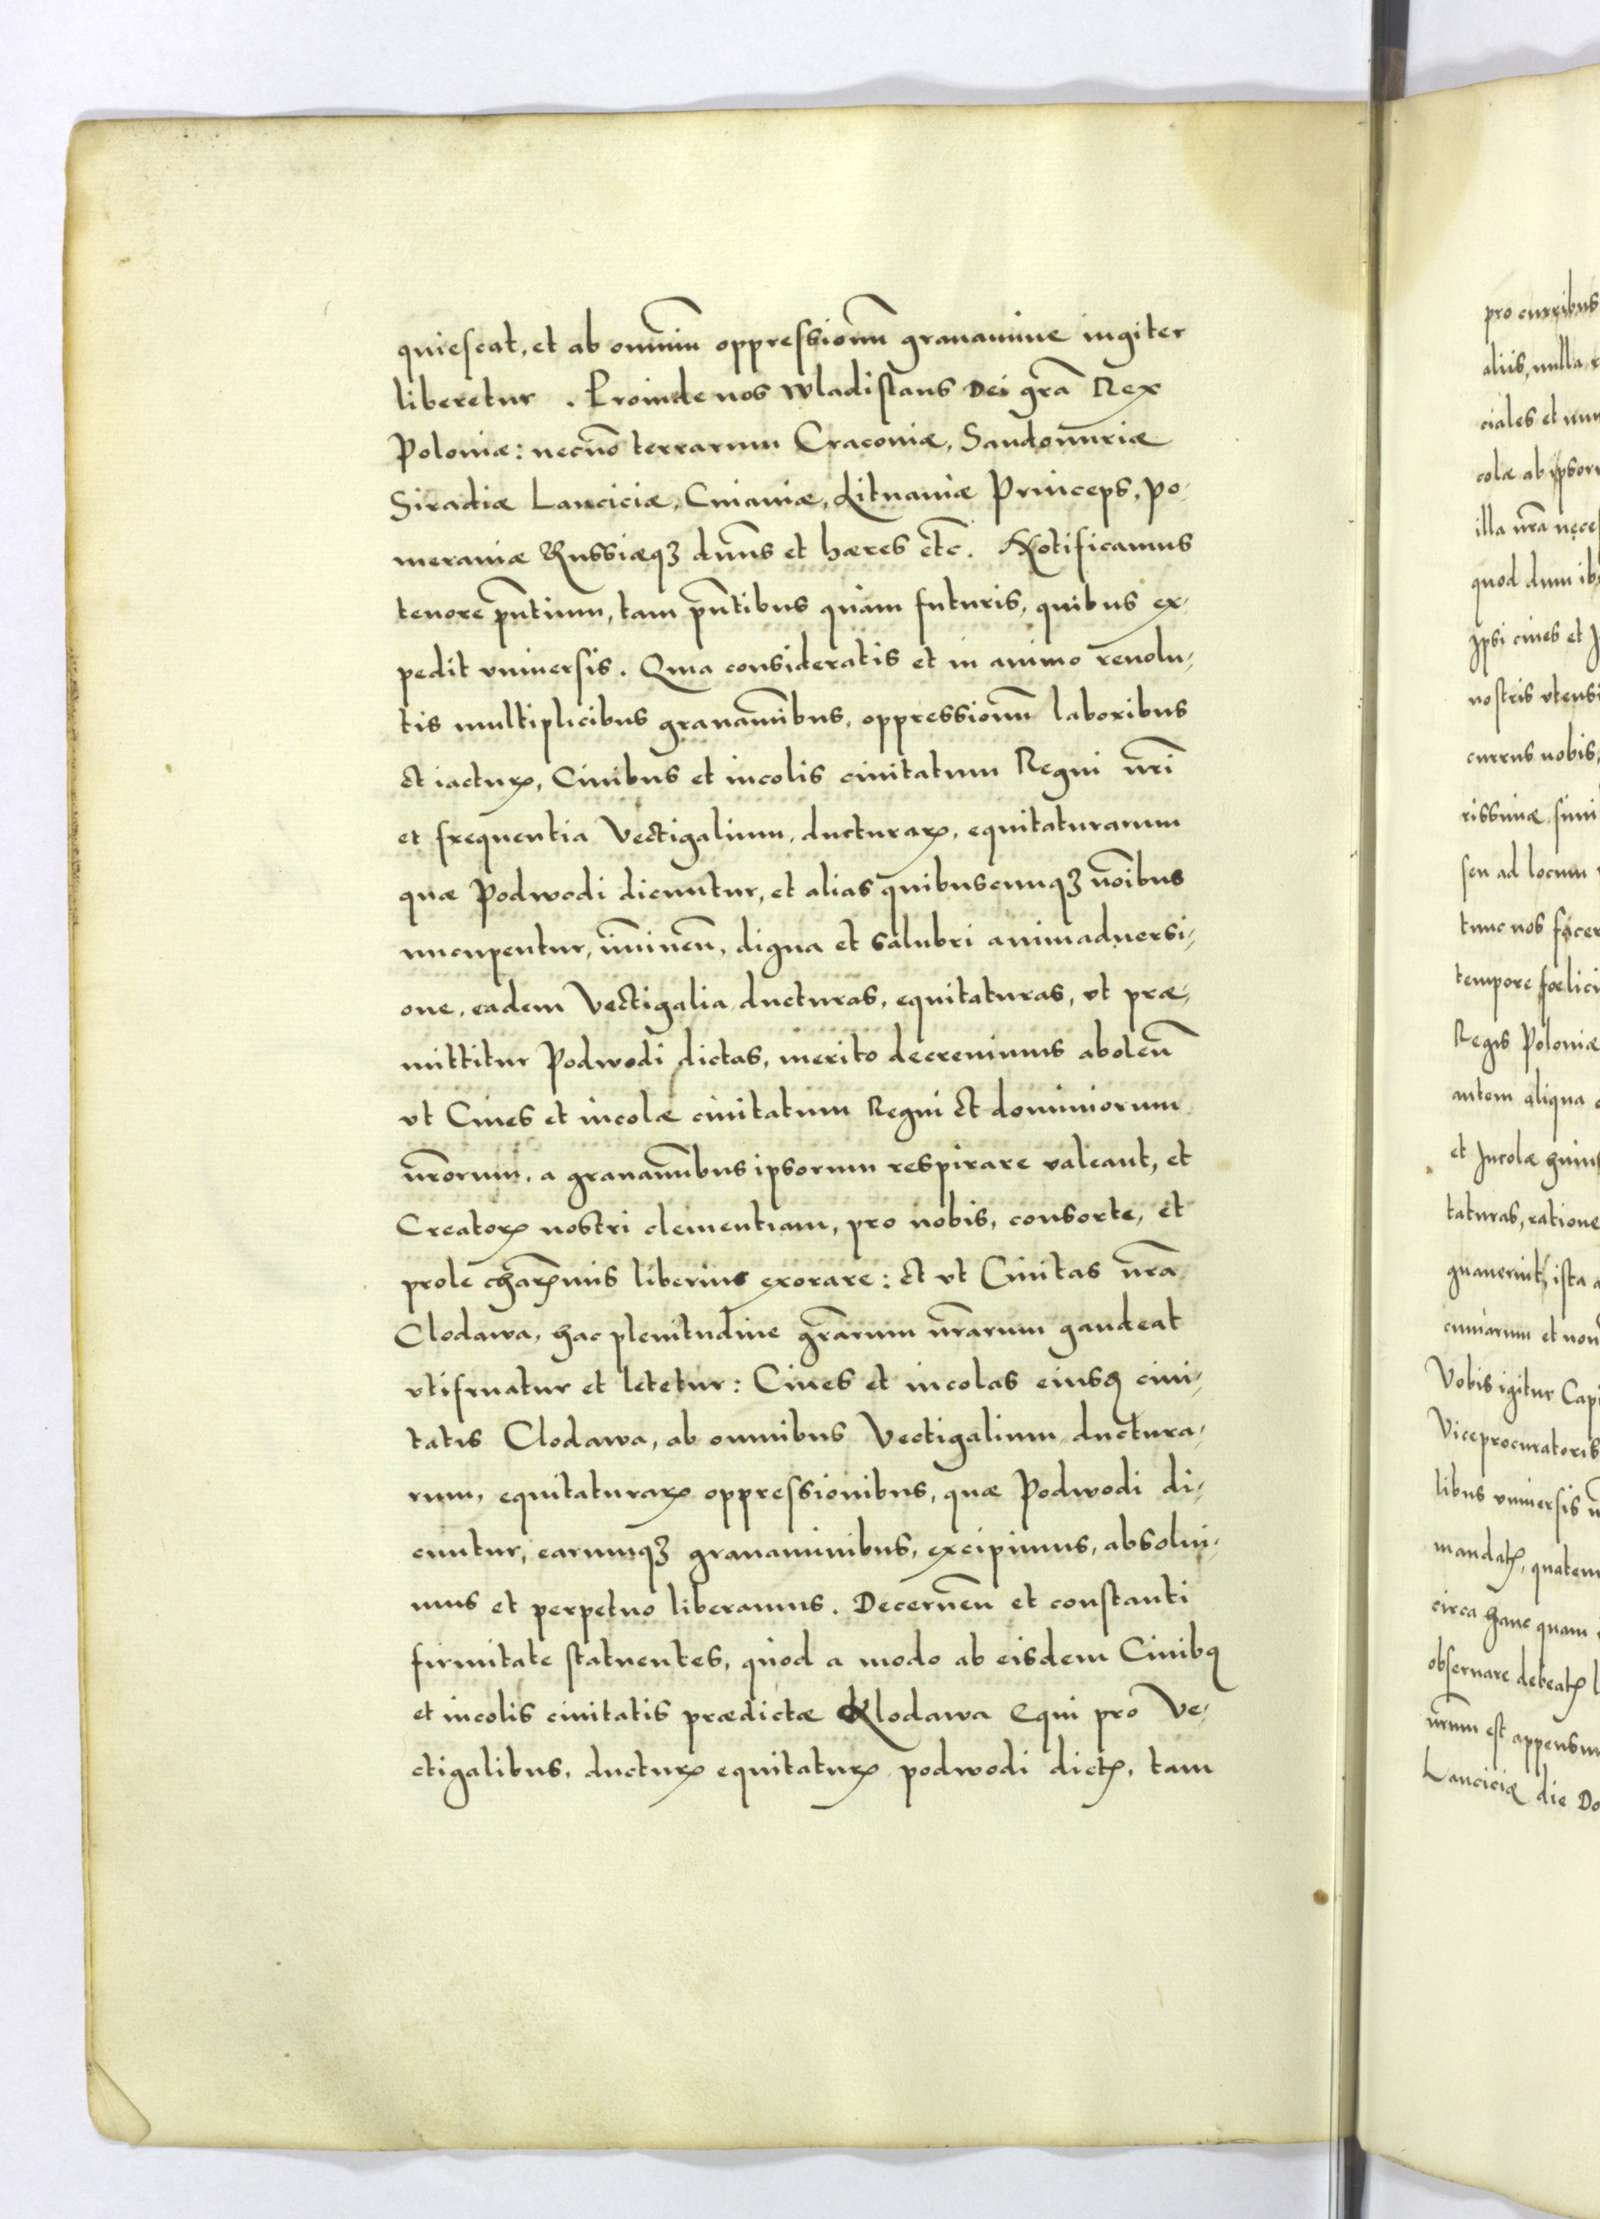 quiescat, et ab omniū oppressionū grauamine iugiter
liberetur . Proinde nos Wladislaus Dei grā Rex
Poloniæ: necnō terrarum Cracoviæ, Sandomiriæ
Siradiæ Lanciciæ, Cuiaviæ, Lituaniæ Princeps, Po-
meraniæ Russiæqꝫ dn̄us et hæres etc̄. Notificamus
tenore pn̄tium, tam pn̄tibus quàm futuris, quibus ex-
pedit vniuersis. Quia consideratis et in animo reuolu-
tis multiplicibus grauam̄ibus, oppressionū laboribus
et iacturꝝ, Ciuibus et incolis ciuitatum Regni nr̄i
et frequentia Vectigalium, ducturarꝝ, equitaturarum
quæ Podwodi dicuntur, et alias quibuscunqꝫ nōibus
nuncupentur, im̄inen̄, digna et salubri animaduersi-
one, eadem Vectigalia ducturas, equitaturas, vt præ-
mittitur Podwodi dictas, merito decreuimus abolen̄
vt Ciues et incolæ ciuitatum Regni et dominiorum
nr̄orum, a grauam̄ibus ipsorum respirare valeant, et
Creatorꝝ nostri clementiam, pro nobis, consorte, et
prole charꝭmis liberius exorare: et vt Ciuitas nr̄a
Clodawa, hac plenitudine gr̄arum nr̄arum gaudeat
vtifruatur et letetur: Ciues et incolas eiusꝗ ciui-
tatis Clodawa, ab omnibus Vectigalium ductura-
rum, equitaturarꝝ oppressionibus, quæ Podwodi di-
cuntur, earumqꝫ grauaminibus, excipimus, absolui-
mus et perpetuo liberamus. Decernen̄ et constanti
firmitate statuentes, quòd a modo ab eisdem Ciuibꝰ
et incolis ciuitatis prædictæ Klodawa Equi pro Ve-
ctigalibus, ducturꝝ equitaturꝝ podwodi dictꝭ, tam
pro curribus
aliis, nulla
ciales et nun
colæ ab ipsoru
illa nr̄a neces
quod dum ib
Ipsi ciues et
nostris vtensi
currus nobis,
rissimæ simi
seu ad locum
tunc nos
tempore fœlici
Regis Poloniæ
autem aliqua
et Incolæ huius
taturas, ratione
guauerint, ista
et non
Vobis igitur Capi
Viceprocuratoris
libus vniuersis
mandatꝭ, quatenu
circa hanc quam
obseruare debeatꝭ
nr̄um est appensum
Lanciciæ die Do